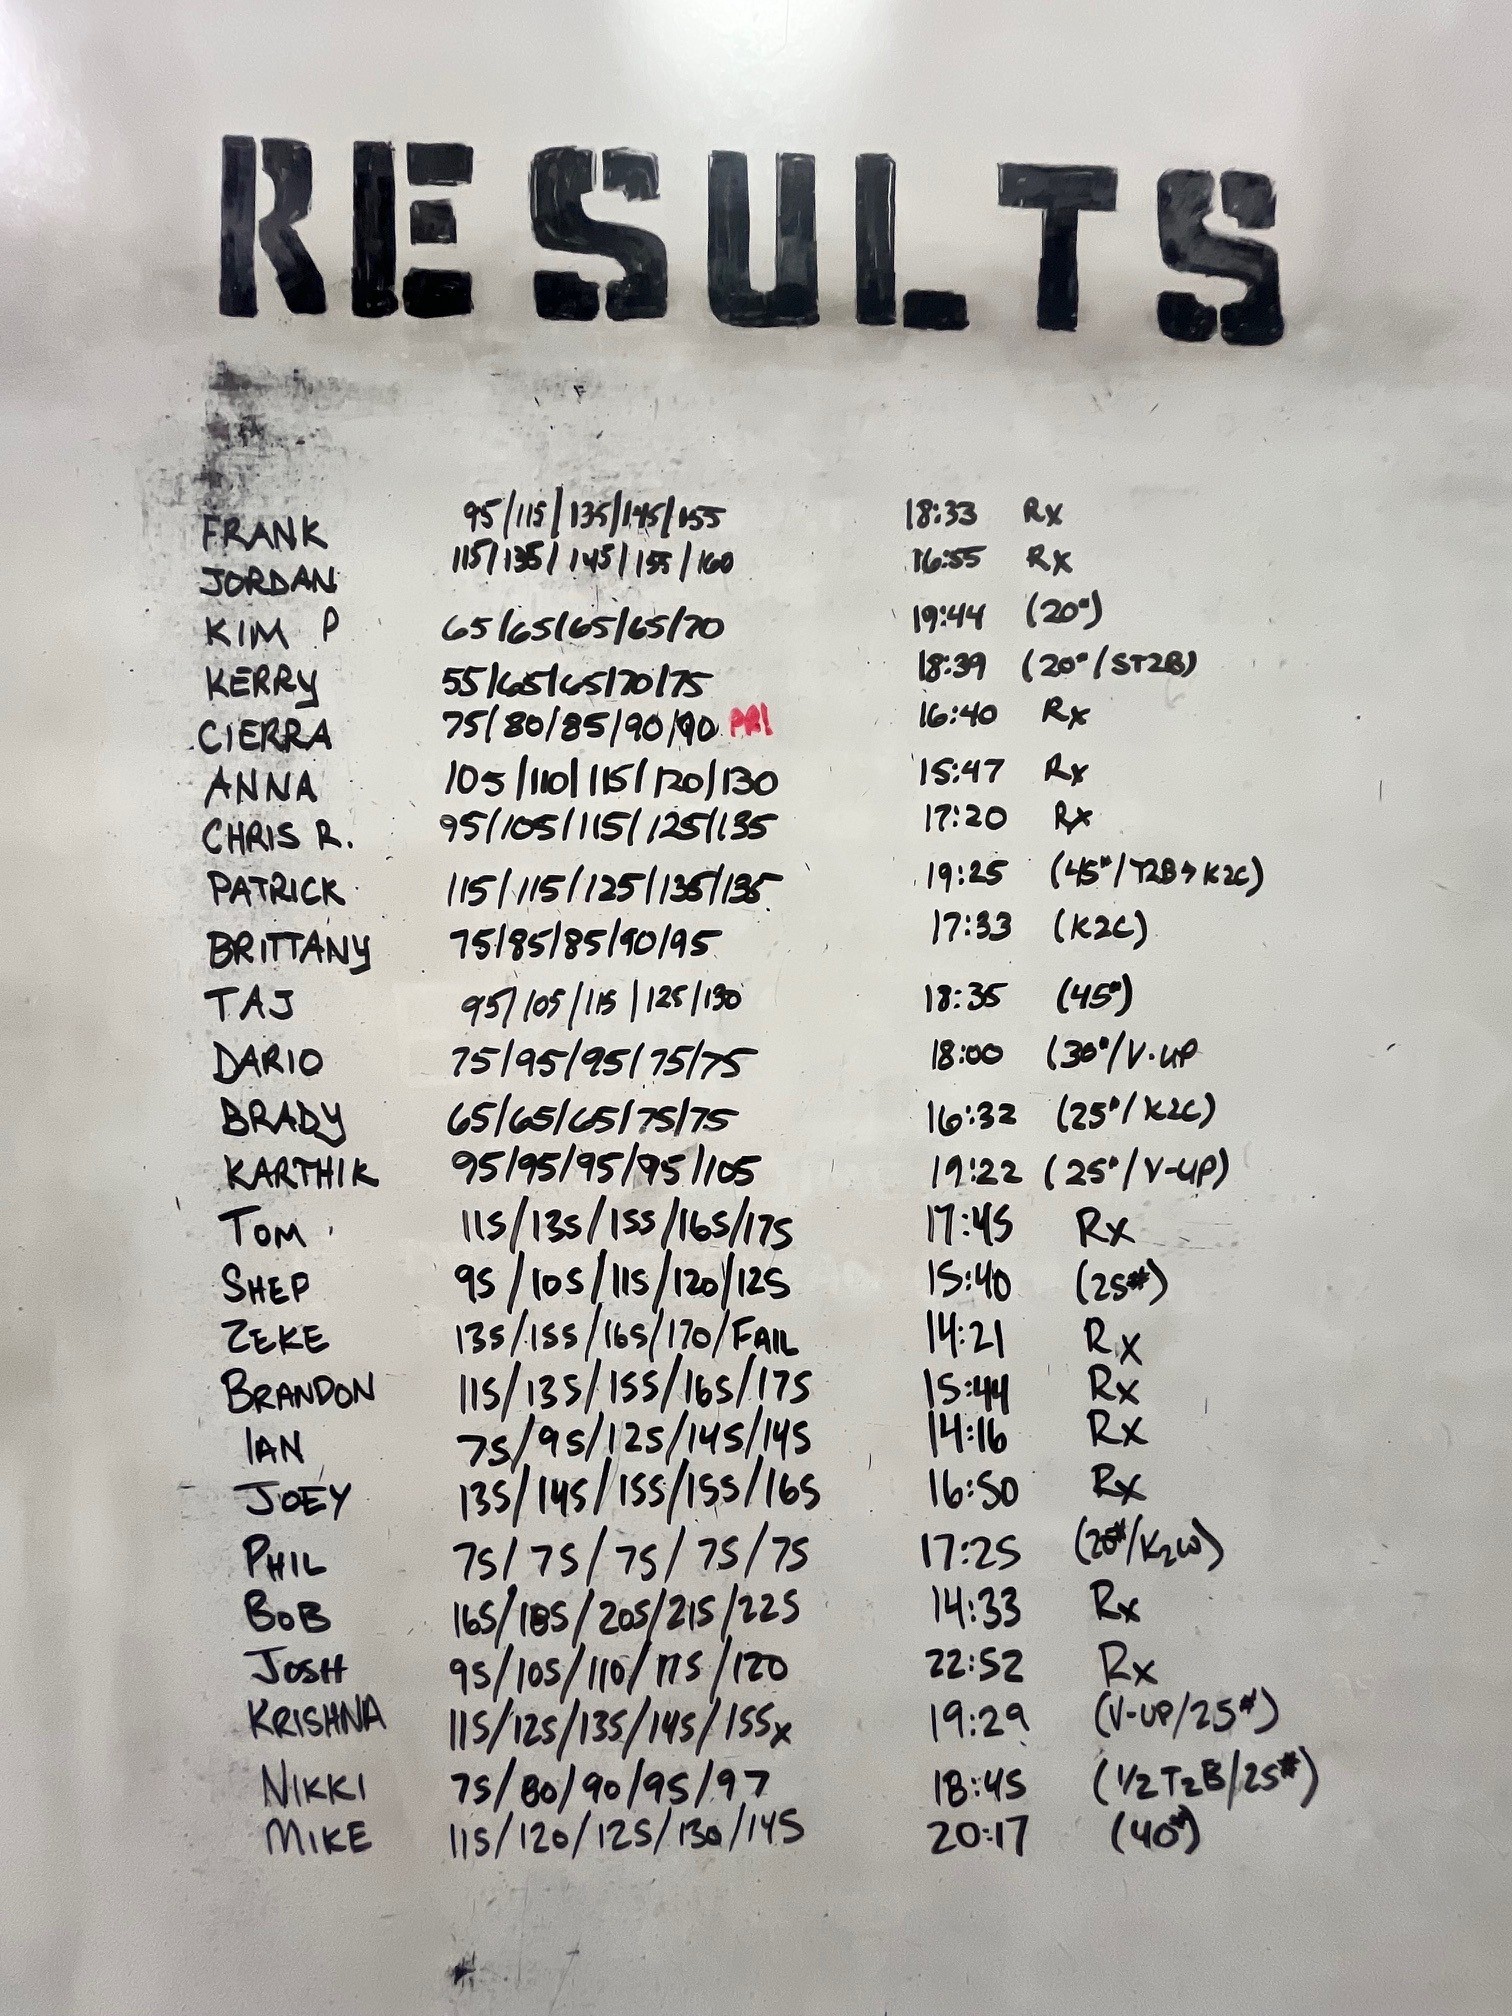 RESULTS
FRANK 95/115/135/145/155 18:33 Rx
JORDAN 115/135/145/155/160 16:55 Rx
KIM P 65/65/65/65/70 19:44 (20#)
KERRY 55/65/65/70/75 18:39 (20#/ST2B)
CIERRA 75/80/85/90/90 PR! 16:40 Rx
ANNA 105/110/115/120/130 15:47 Rx
CHRIS R. 95/105/115/125/135 17:20 Rx
PATRICK 115/115/125/135/135 19:25 (45#/T2B→K2C)
BRITTANY 75/85/85/90/95 17:33 (K2C)
TAJ 95/105/115/125/130 18:35 (45#)
DARIO 75/95/95/75/75 18:00 (30#/V-UP
BRADY 65/65/65/75/75 16:32 (25#/K2C)
KARTHIK 95/95/95/95/105 19:22 (25#/V-UP)
TOM 115/135/155/165/175 17:45 Rx
SHEP 95/105/115/120/125 15:40 (25#)
ZEKE 135/155/165/170/FAIL 14:21 Rx
BRANDON 115/135/155/165/175 15:44 Rx
IAN 75/95/125/145/145 14:16 Rx
JOEY 135/145/155/155/165 16:50 Rx
PHIL 75/75/75/75/75 17:25 (20#/K2W)
BOB 165/185/205/215/225 14:33 Rx
JOSH 95/105/110/115/120 22:52 Rx
KRISHNA 115/125/135/145/155x 19:29 (V-UP/25#)
NIKKI 75/80/90/95/97 18:45 (1/2 T2B/25#)
MIKE 115/120/125/130/145 20:17 (40#)